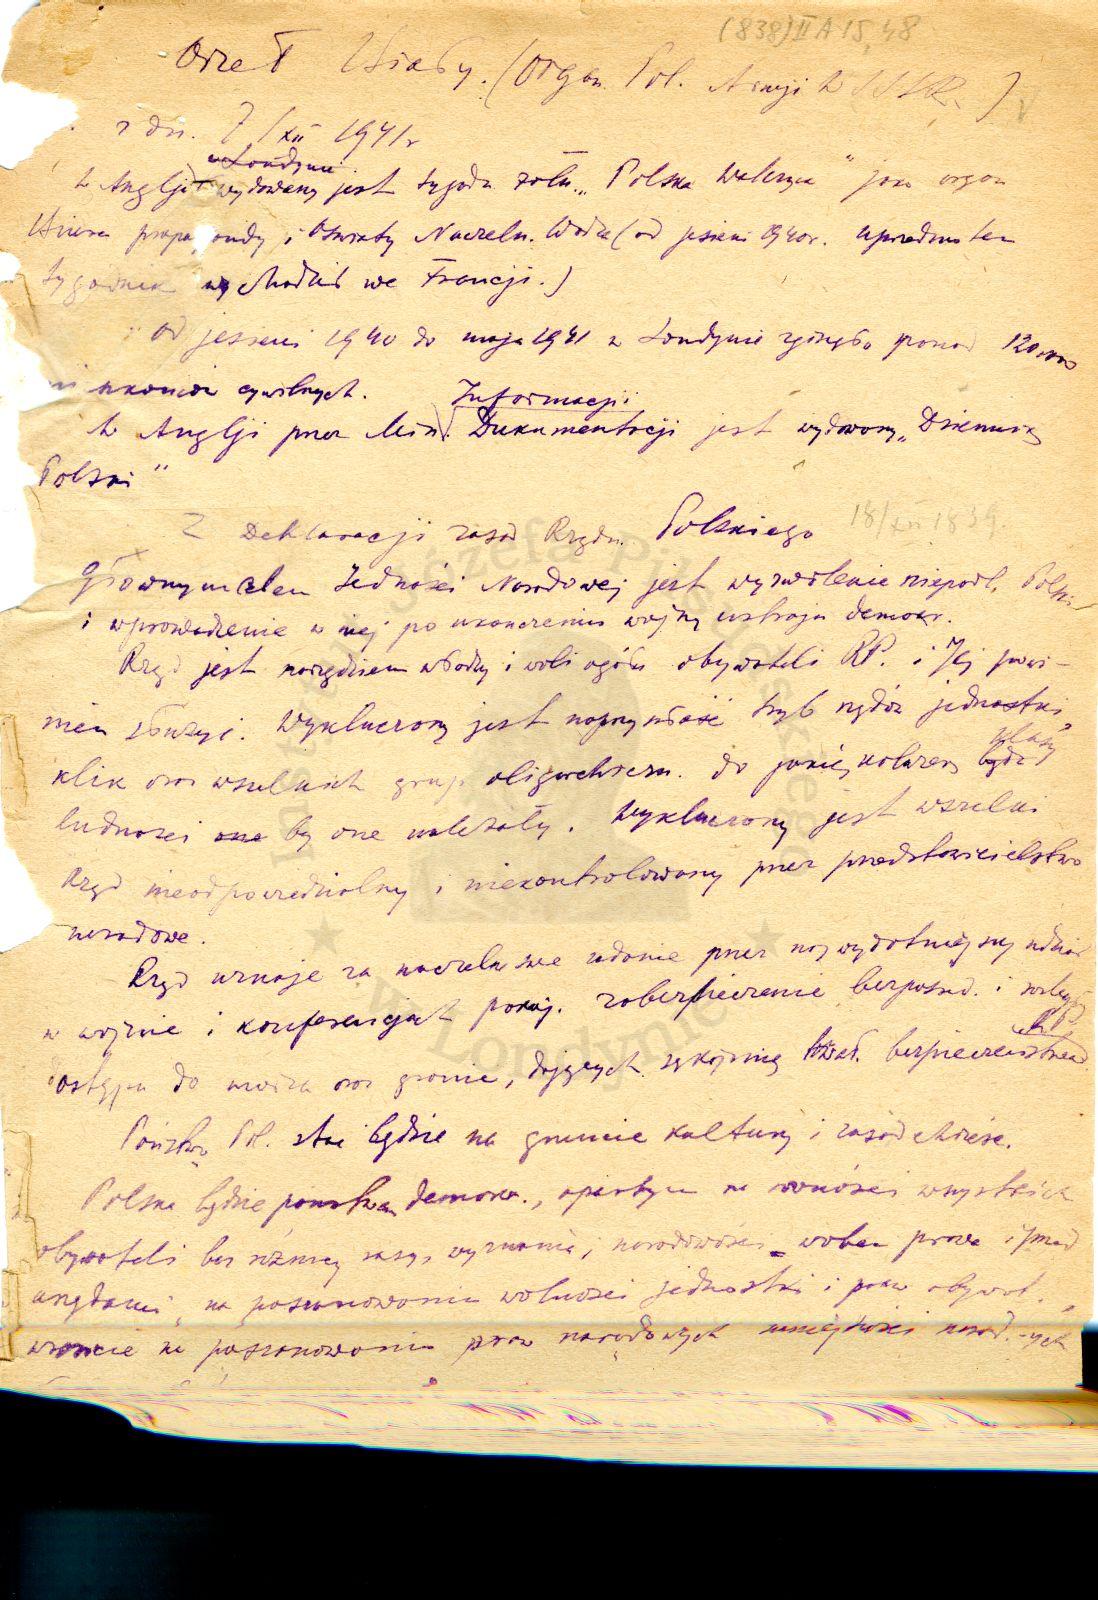 (838) II A 15, 48
Orzeł Biały. (Organ Pol. Armji w SSSR.)
z dn. 7/XII 1941 r
w Londynie
w Anglji wydawany jest tygodn. żołn. „Polska Walcząca" jako organ
propagandy i Oświaty Naczeln. Wodza (od jesieni 1940 r. uprzednio ten
tygodnik wychodził we Francji.)
Od jesieni 1940 do maja 1941 w Londynie zginęło ponad
cywilnych. Informacji i
w Anglji przez Min. Dokumentacji jest wydawany „Dziennik
Polski"
Z Deklaracji zasad Rządu Polskiego 18/XII 1939.
Głównym celem Jedności Narodowej jest wyzwolenie niepodl. Polski
i wprowadzenie w niej po ukończeniu wojny ustroju demokr.
Rząd jest narzędziem władzy i woli ogółu obywateli RP. i Jej powi-
nien służyć. Wykluczony jest na przyszłość tryb rządów jednostki,
klasy
klik oraz wszelkich grup oligarchiczn. do jakiejkolwiek bądź
ludności one by one należały. Wykluczony jest wszelki
Rząd nieodpowiedzialny i niekontrolowany przez przedstawicielstwo
narodowe.
Rząd uznaje za naczelne swe zadanie przez najwydatniejszy udział
w wojnie i konferencjach pokoj. zabezpieczenie bezpośred. i rozległ.
RP.
dostępu do morza oraz granic, dających rękojmię trwał. bezpieczeństwa
Państwo Pol. stać będzie na gruncie kultury i zasad chrześc.
Polska będzie państwem demokr., opartym na równości wszystkich
obywateli bez różnicy rasy, wyznania, narodowości wobec prawa i przed
urzędami, na poszanowaniu wolności jednostki i praw obywat.,
wreszcie na poszanowaniu praw narodowych mniejszości narod.-ych
Józefa Piłsudskiego
w Londynie